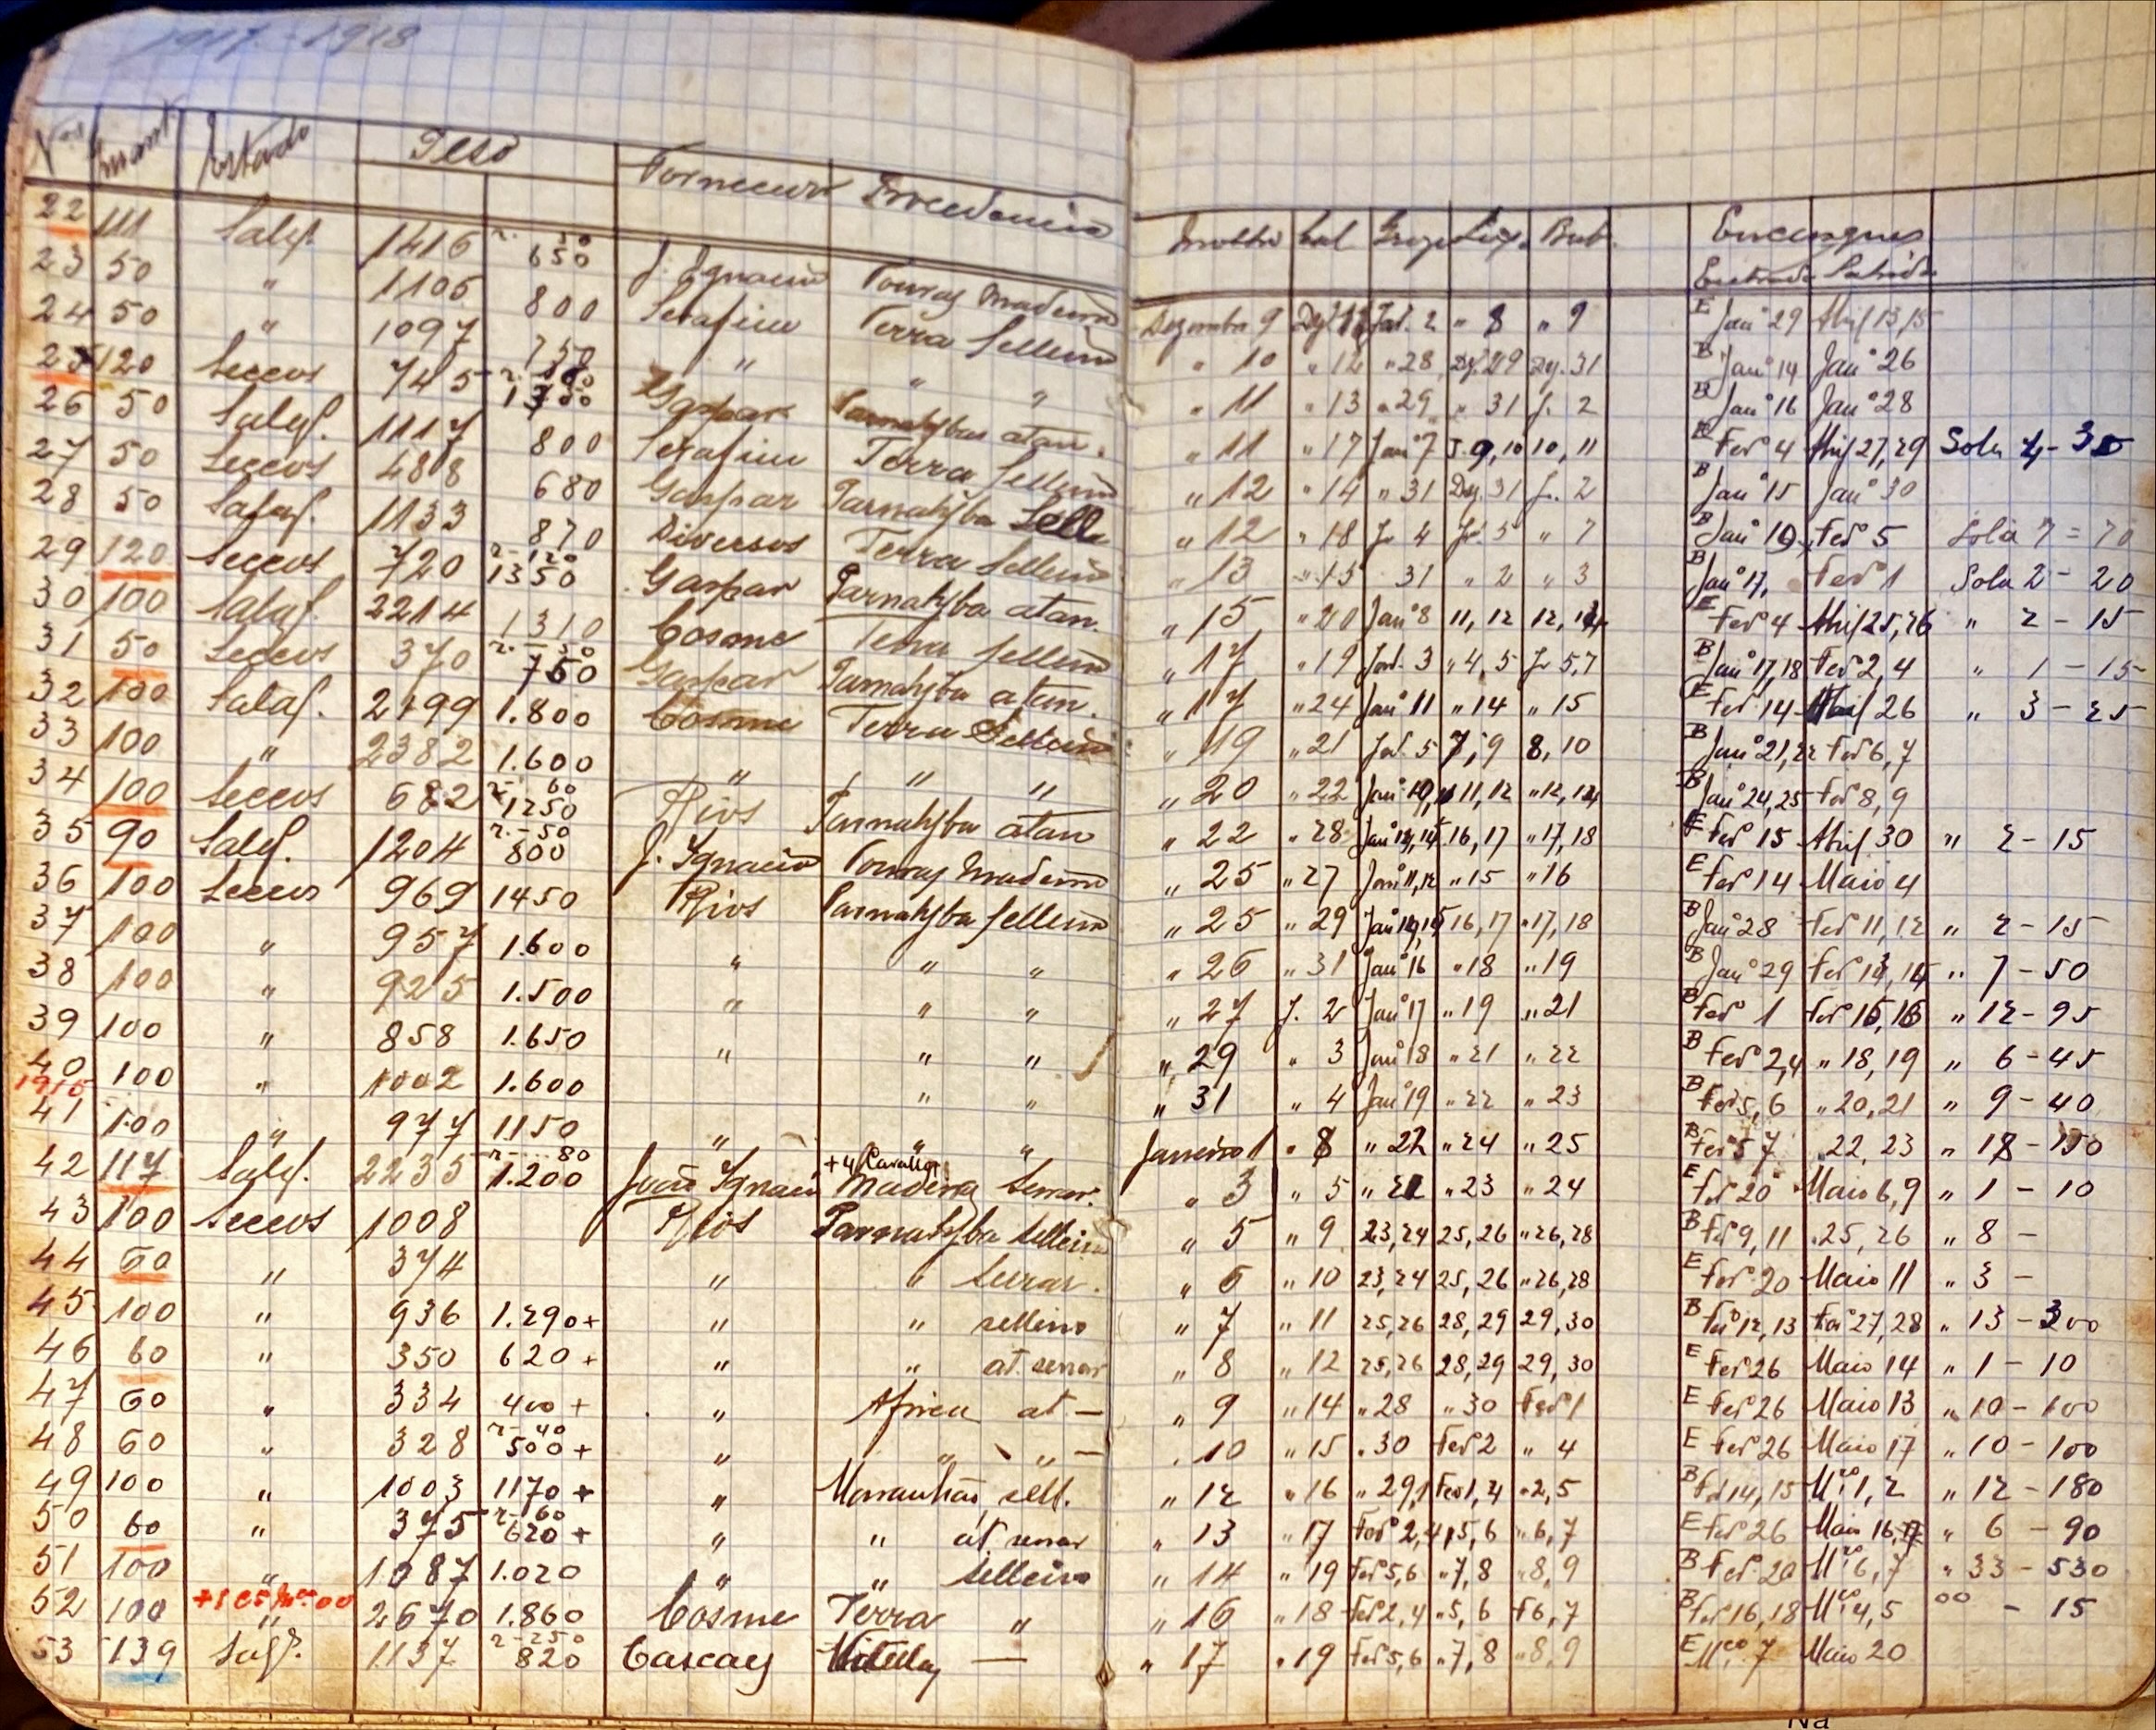 1917-1918
Nos Quant. Estado Peso Fornecedor Procedencia
22 111 Salg. 1416 r. 30 650 J. Ignacio Touros Madeira
23 50 " 1105 800 Serafim Terra Selleiro
24 50 " 1097 750 " " "
25 120 Seccos 745 1300 Gaspar Parnahyba atan.
26 50 Salg. 1117 800 Serafim Terra Selleiro
27 50 Seccos 488 680 Gaspar Parnahyba Sell
28 50 Salg. 1133 870 Diversos Terra Selleiro
29 120 Seccos 720 r-120 1350 Gaspar Parnahyba atan.
30 100 Salg. 2214 1310 Cosme Terra Selleiro
31 50 Seccos 370 r.-50 750 Gaspar Parnahyba atan.
32 100 Salg. 2199 1.800 Cosme Terra Selleiro
33 100 " 2382 1.600 " " " "
34 100 Seccos 682 r- 60 1250 Rios Parnahyba atan
35 90 Salg. 1204 r.-50 800 J. Ignacio Touros Madeira
36 100 Seccos 969 1450 Rios Parnahyba Selleiro
37 100 " 957 1.600 " " "
38 100 " 925 1.500 " " "
39 100 " 858 1.650 " " "
40 100 " 1002 1.600 " "
41 100 " 977 1150 " " "
42 117 Salg. 2235 r-...80 1.200 João Ignacio Madeira
43 100 Seccos 1008 Rios Parnahyba Selleiro
44 60 " 374 " "
45 100 " 936 1.290+ " " selleiro
46 60 " 350 620+ " at. serrar
47 60 " 334 400+ " Africa at-
48 60 " 328 r-40 500+ " " " -
49 100 " 1003 1170+ " Maranhão sell.
50 60 " 375 r-160 620+ " " at. serrar
51 100 " 1087 1.020 " " selleiro
52 100 " 2670 1.860 Cosme Terra "
53 139 Salg. 1137 r-250 820 Cascaes —
Molho Cal Entrada Sahida
Dezembro 9 " 8 " 9 E Jan° 29
" 10 " 12 " 28 Dz. 29 Dz. 31 B Jan° 14 Jan° 26
" 11 " 13 " 29 " 31 J. 2 B Jan° 16 Jan° 28
" 11 " 17 Jan° 7 J. 9,10 10,11 E Fev° 4 Abril 27,29 Sola 4-30
" 12 " 14 " 31 Dz. 31 J. 2 B Jan° 15 Jan° 30
" 12 " 18 J. 4 J. 5 " 7 B Jan° 19 Fev° 5 Sola 7=70
" 13 " 15 31 " 2 " 3 B Jan° 17, Fev° 1 Sola 2-20
" 15 " 20 Jan° 8 11,12 12,14 E Fev° 4 Abril 25,26 " 2-15
" 17 " 19 Jan. 3 " 4,5 J. 5,7 B Jan° 17,18 Fev° 2,4 " 1-15
" 17 " 24 Jan° 11 " 14 " 15 E Fev° 14 Abril 26 " 3-25
" 19 " 21 Jan. 5 7,9 8,10 B Jan° 21,22 Fev° 6,7
" 20 " 22 Jan° 11,12 " 12,14 B Jan° 24,25 Fev° 8,9
" 22 " 28 Jan° 14,15 16,17 " 17,18 E Fev° 15 Abril 30 " 2-15
" 25 " 27 Jan° 11,12 " 15 " 16 E Fev° 14 Maio 4
" 25 " 29 Jan° 14,15 16,17 " 17,18 B Jan° 28 Fev° 11,12 " 2-15
" 26 " 31 Jan° 16 " 18 " 19 B Jan° 29 Fev° 14,15 " 7-50
" 27 J. 2 Jan° 17 " 19 " 21 B Fev° 1 Fev° 15,16 " 12-95
" 29 " 3 Jan° 18 " 21 " 22 B Fev° 2,4 " 18,19 " 6-45
" 31 " 4 Jan° 19 " 22 " 23 B Fev° 5,6 " 20,21 " 9-40
Janeiro 1 " 8 " 22 " 24 " 25 B Fev° 7 22,23 " 18-150
" 3 " 5 " 23 " 24 E Fev° 20 Maio 6,9 " 1-10
" 5 " 9 23,24 25,26 " 26,28 B Fev° 9,11 25,26 " 8 -
" 5 " 10 23,24 25,26 " 26,28 E Fev° 20 Maio 11 " 3 -
" 7 " 11 25,26 28,29 29,30 B Fev° 12,13 Fev° 27,28 " 13-300
" 8 " 12 25,26 28,29 29,30 E Fev 26 Maio 14 " 1-10
" 9 " 14 " 28 " 30 Fev° 1 E Fev° 26 Maio 13 " 10-100
" 10 " 15 " 30 Fev° 2 " 4 E Fev° 26 Maio 17 " 10-100
" 12 " 16 " 29, Fev° 1,4 " 2,5 B Fev° 14,15 Mço 1,2 " 12-180
" 13 " 17 Fev° 2,4 " 5,6 " 6,7 E Fev° 26 Maio 16,17 " 6-90
" 14 " 19 Fev° 5,6 " 7,8 " 8,9 B Fev° 20 Mço 6,7 " 33-530
" 16 " 18 Fev° 2,4 " 5,6 F 6,7 B Fev° 16,18 Mço 4,5 °° - 15
" 17 " 19 Fev° 5,6 " 7,8 " 8,9 E Mço 7 Maio 20